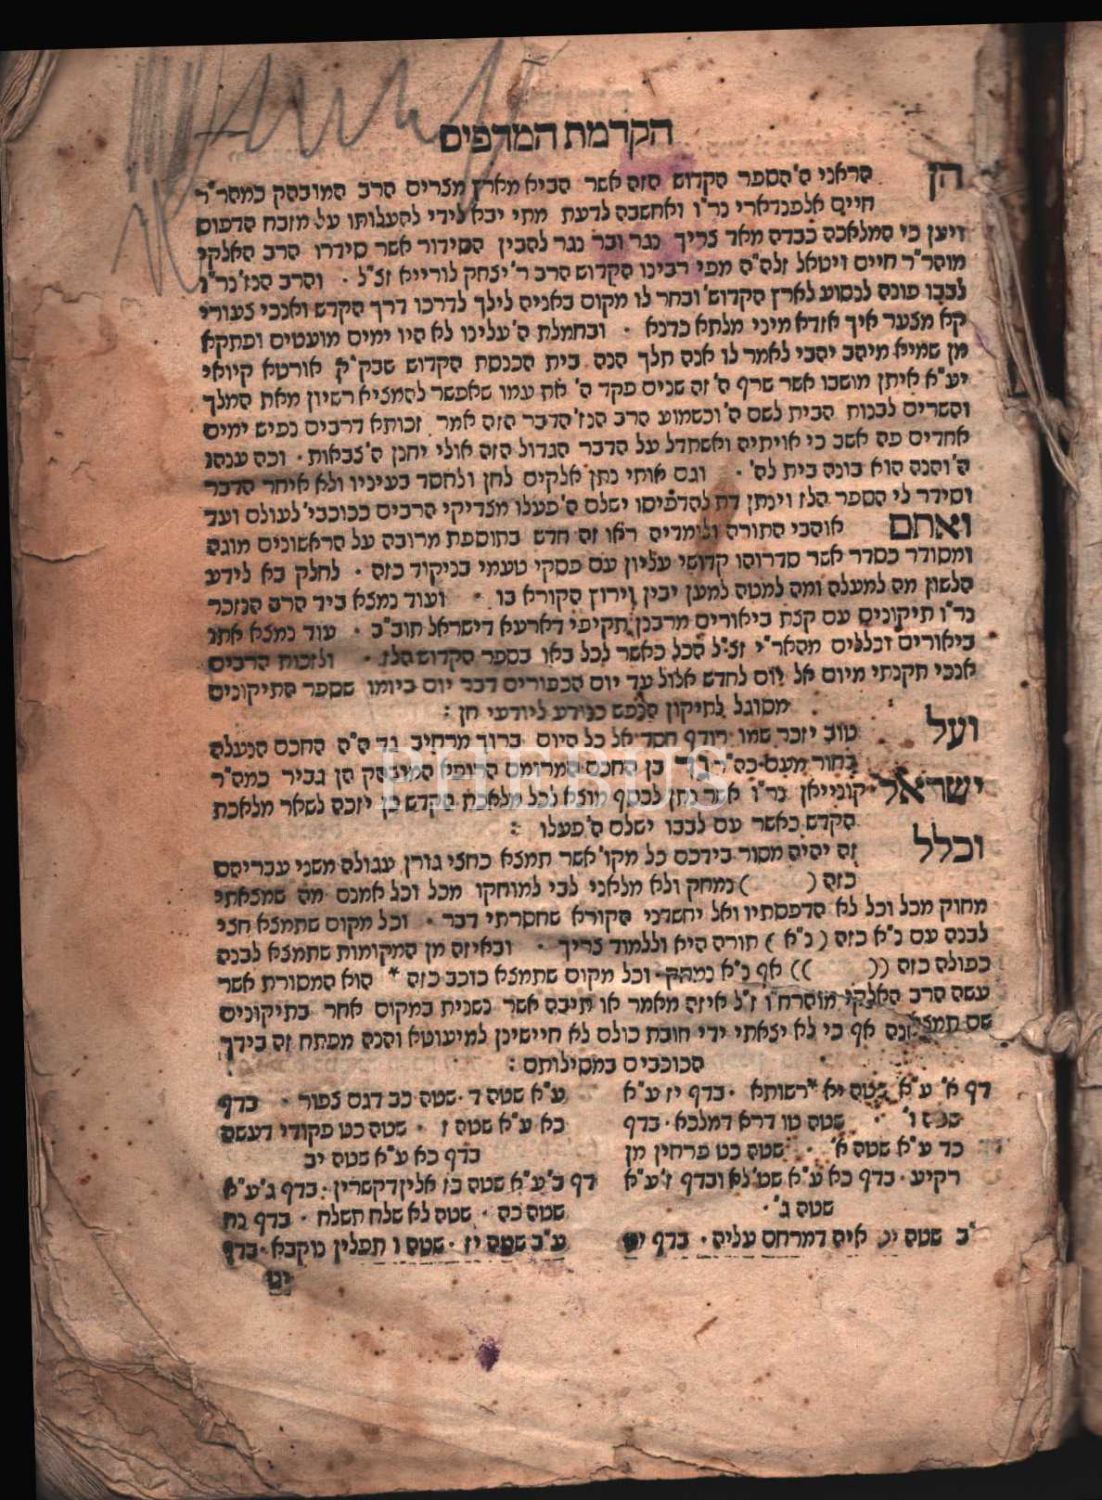 הקדמת המדפיס
הן הראני ה' הספר הקדוש הזה אשר הביא מארץ מצרים הרב המובהק כמהר"ר
חיים אלפנדארי נר"ו ואחשבה לדעת מתי יבא לידי להעלותו על מזבח הדפוס
ויען כי המלאכה כבדה מאד צריך נגר ובר נגר להבין הסידור אשר סידרו הרב האלקי
מוהר"ר חיים ויטאל זלה"ה מפי רבינו הקדוש הרב ר' יצחק לורייא זצ"ל . והרב הנז' נר"ו
לבבו פונה לנסוע לארץ הקדוש' ובחר לו מקום באניה לילך לדרכו דרך הקדש ואנכי צעורי
קא מצער איך אזדא מיני מלתא כדנא . ובחמלת ה' עלינו לא היו ימים מועטים ופתקא
מן שמיא מיהב יהבי לאמר לו אנה תלך הנה בית הכנסת הקדוש שבק"ק אורטא קיואי
יע"א איתן מושבו אשר שרף ה' זה שנים פקד ה' את עמו שאפשר להמציא רשיון מאת המלך
והשרים לבנות הבית לשם ה' וכשמוע הרב הנז' הדבר הזה אמר זכותא דרבים נפיש ימים
אחדים פה אשב כי אויתיה ואשתדל על הדבר הגדול הזה אולי יחנן ה' צבאות . וכה ענהו
ה' והנה הוא בונה בית לה' . וגם אותי נתן אלקים לחן ולחסד בעיניו ולא איחר הדבר
וסידר לי הספר הלז וינתן דת להדפיסו ישלם ה' פעלו מצדיקי הרבים ככוכבי' לעולם ועד
ואתם אוהבי התורה ולומדיה ראו זה חדש בתוספת מרובה על הראשונים מוגה
ומסודר כסדר אשר סדרוהו קדושי עליון עם פסקי טעמי בניקוד כזה . לחלק בא לידע
הלשון מה למעלה ומה למטה למען יבין וירוץ הקורא בו . ועוד נמצא ביד הרב הנזכר
נר"ו תיקונים עם קצת ביאורים מרבנן תקיפי דארעא דישראל תוב"ב . עוד נמצא אתו
ביאורים וכללים מהאר"י זצ"ל הכל כאשר לכל באו בספר הקדוש הלז . ולזכות הרבים
אנכי תקנתי מיום אל יום לחדש אלול עד יום הכפורים דבר יום ביומו שספר התיקונים
מסוגל לתיקון הנפש כנודע ליודעי חן :
ועל טוב יזכר שמו רודף חסד אל כל היום ברוך מרחיב גד ה"ה החכם הנעלה
בחור מעם כה"ר בן החכם המרומם הרופא המובהק הן גביר כמה"ר
ישראל קונייאן נר"ו אשר נתן לכסף מוצא לכל מלאכת הקדש כן יזכה לשאר מלאכת
הקדש כאשר עם לבבו ישלם ה' פעלו :
וכלל זה יהיה מסור בידכם כל מקו' אשר תמצא כחצי גורן עגולה משני עבריהם
כזה ( ) נמחק ולא מלאני לבי למוחקו מכל וכל אמנם מה שמצאתי
מחוק מכל וכל לא הדפסתיו ואל יחשדני הקורא שחסרתי דבר . וכל מקום שתמצא חצי
לבנה עם נ"א כזה ( נ"א ) תורה היא וללמוד צריך . ובאיזה מן המקומות שתמצא לבנה
כפולה כזה (( )) אף נ"א נמחק . וכל מקום שתמצא כוכב כזה * הוא המסורת אשר
עשה הרב האלקי מוהרח"ו ז"ל איזה מאמר או תיבה אשר נשנית במקום אחר בתיקונים
שם תמצאנה אף כי לא יצאתי ידי חובת כולם לא חיישינן למיעוטא והנה מפתח זה בידך
הכוכבים במסילותם :
דף א' ע"א שטה יא רשותא . בדף יז ע"א
שטה ו' . שטה טו דרא דמלכא . בדף
כד ע"א שטה א' . שטה כט פרחין מן
רקיע . בדף כא ע"א שט' לא ובדף ז' ע"א
שטה ג' .
ע"ב שטה יג איה דמרחם עליה . בדף יט
ע"א שטה ד . שטה כב דגם צפור . בדף
כא ע"א שטה ז . שטה כט פקודי דעשה
בדף כא ע"א שטה יב
דף ב' ע"א שטה כז אלין דקשרין . בדף ג' ע"א
שטה כה . שטה לא שלח תשלח . בדף נח
ע"ב שטה יז . שטה ו תפלין נוקבא . בדף
יט